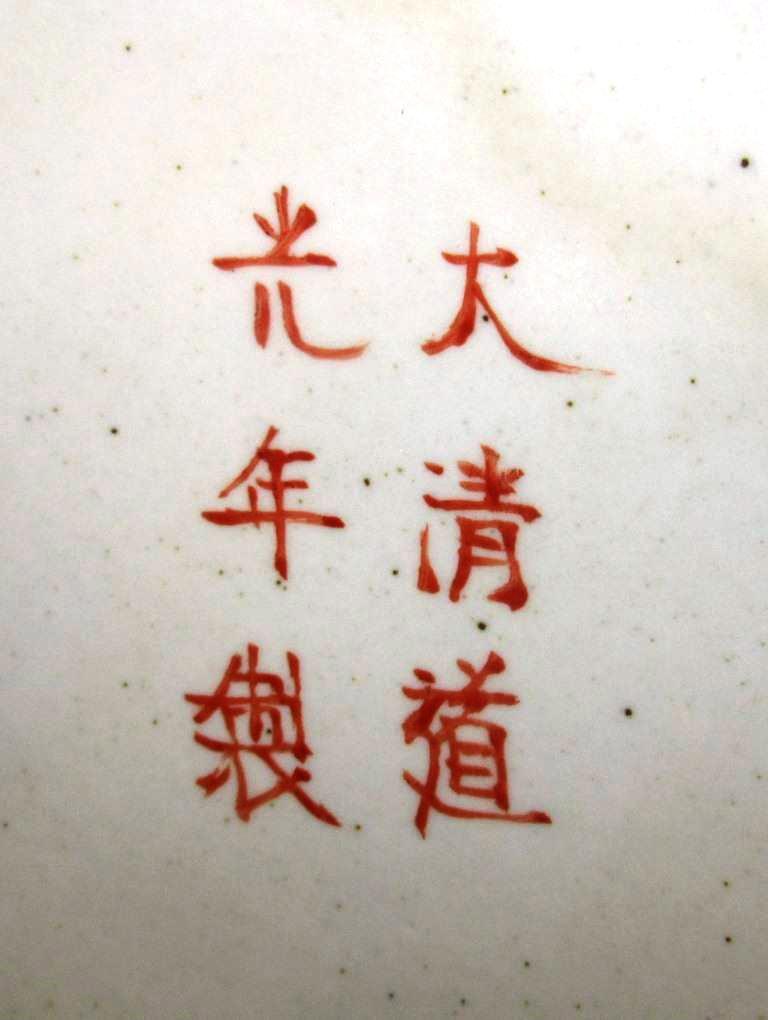 大清道
光年製